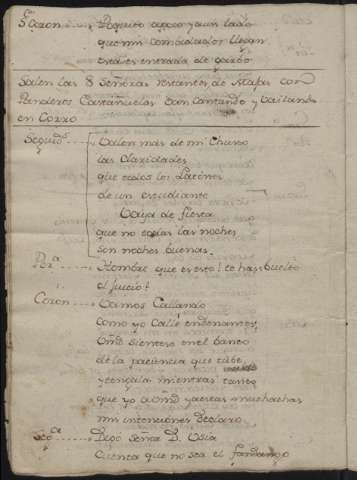 Coron... Poquito a poco y a un lado
que mis combidados llegan
esta es entrada de garbo
Salen las 8 Señoras restantes de Majas con
Panderos Castañuelas Cantando y bailando
en Corro
Seguids Valen mas de mi Churro
las claridades
que todos los Latines
de un estudiante
Vaya de fiesta
que no todas las noches
son noches buenas.
Pora.... Hombre que es esto! te has buelto
el juicio?
Coron.... Vamos Callando
como yo Callé endenantes,
Vmd sientese en el banco
de la paciencia que tube
y tengala mientras tanto
que yo a Vmd y a estas muchachas
mis intenciones declaro
Sega.... Digo señá D. Vsia
Cuenta que no sea el fandango